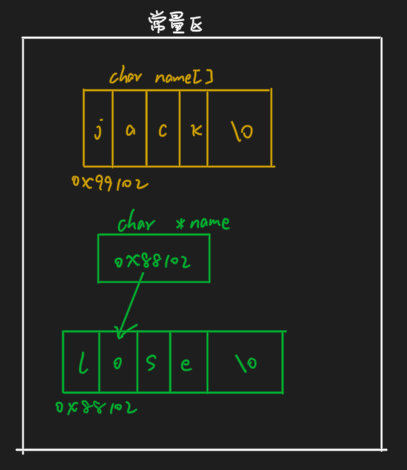 常量区
char name[]
j a c k \0
0x99102
char *name
0x88102
l o s e \0
0x88102